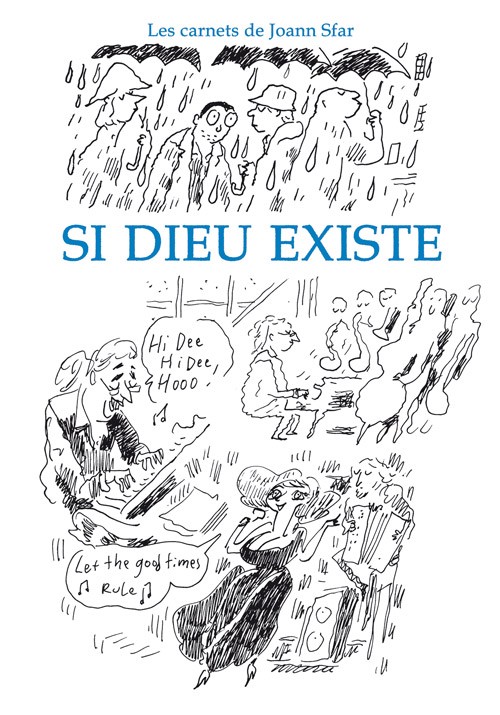 Les carnets de Joann Sfar
SI DIEU EXISTE
Hi Dee
Hi Dee,
Hooo!
Let the good times
Rule